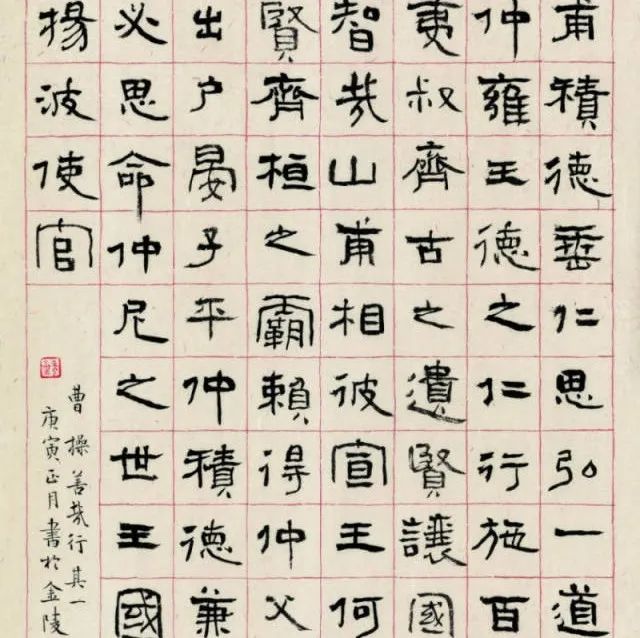 甫積德垂仁思弘一道
仲雍王德之仁行施百
夷叔齊古之遺賢讓國
智哉山甫相彼宣王何
賢齊桓之霸賴得仲父
出户晏子平仲積德兼
必思命仲尼之世王國
揚波使官
曹操善哉行其一
庚寅正月書於金陵